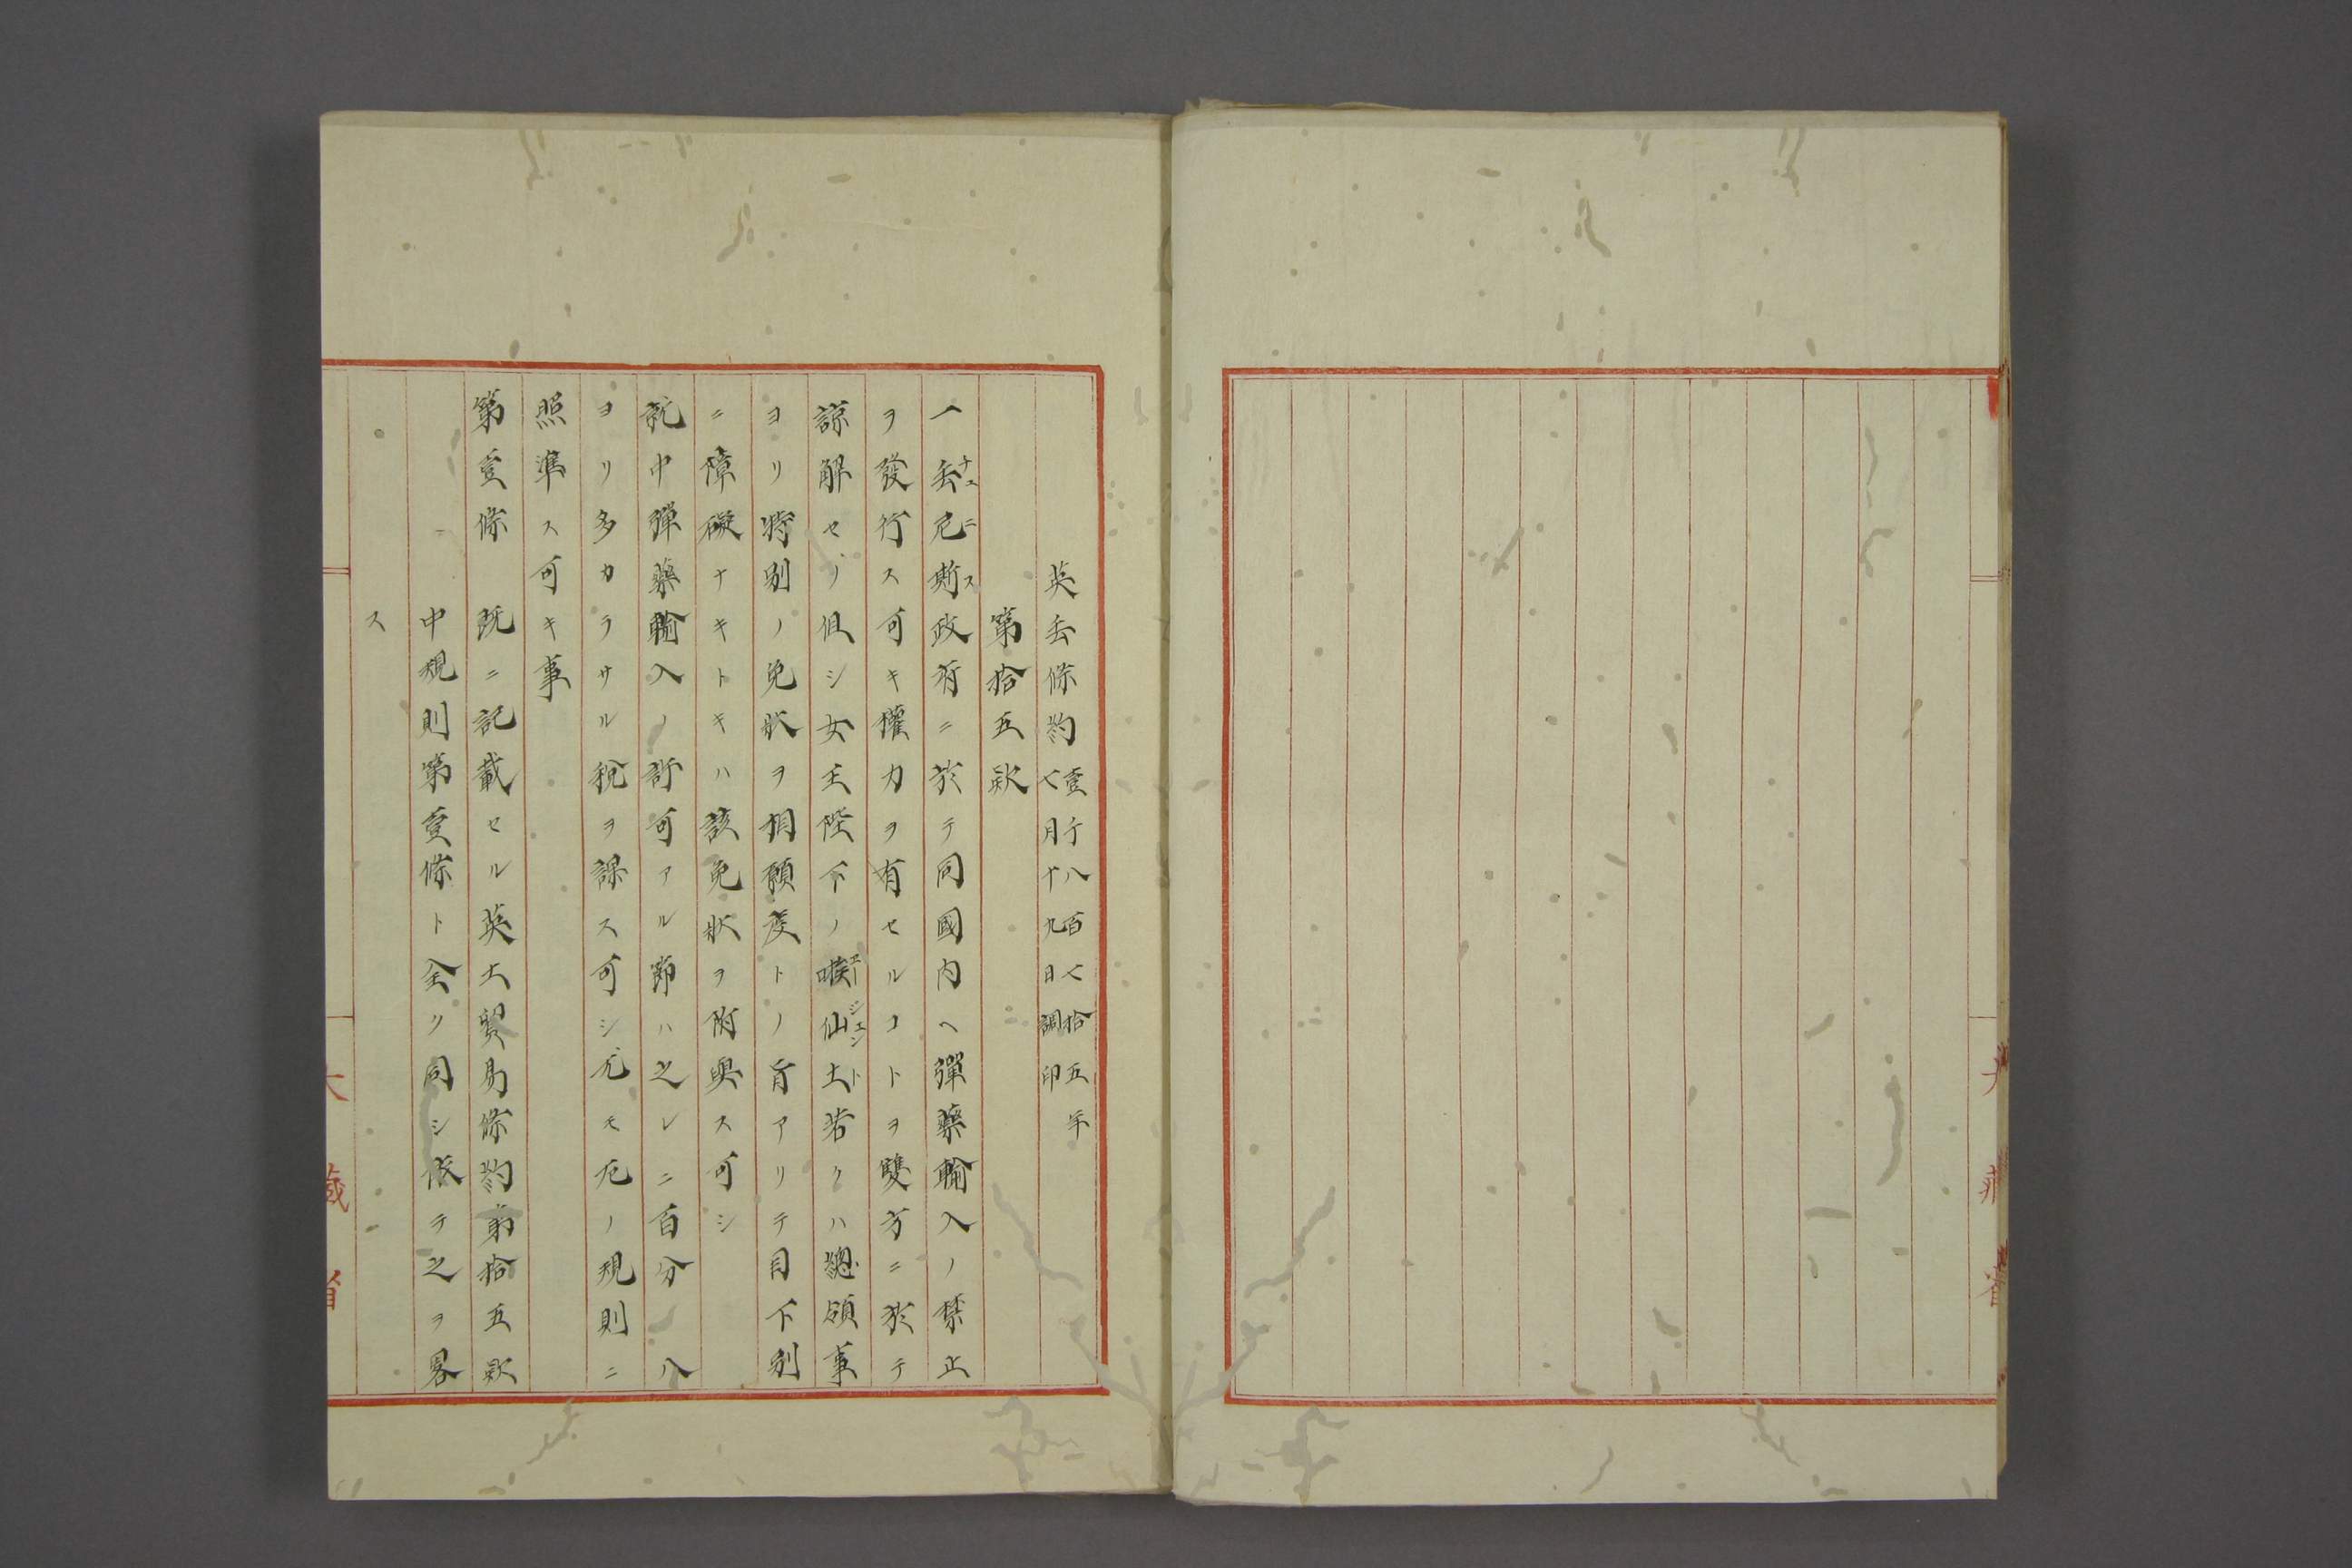 英丢條約
壹千八百七拾五年
七月十九日調印
第拾五欵
一丢尼斯政府ニ於テ同國内ヘ彈藥輸入ノ禁止
チユニス
ヲ發行ス可キ權力ヲ有セルコトヲ雙方ニ於テ
諒解セリ但シ女王陛下ノ喉仙土若クハ總領事
エージエント
ヨリ特別ノ免狀ヲ相願度トノ旨アリテ目下別
ニ障礙ナキトキハ該免狀ヲ附與ス可シ
就中彈藥輸入ノ許可アル節ハ之レニ百分ノ八
ヨリ多カラサル稅ヲ課ス可シ尤モ左ノ規則ニ
照準ス可キ事
第壹條 既ニ記載セル英土貿易條約第拾五欵
中規則第壹條ト全ク同シ依テ之ヲ畧
ス
大藏省